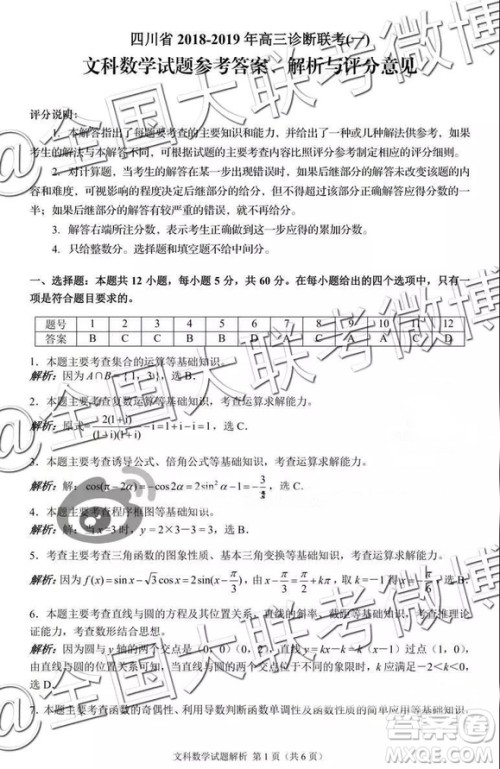 四川省 2018-2019 年高三诊断联考(一)
文科数学试题参考答案、解析与评分意见
评分说明：
1. 本解答指出了每题要考查的主要知识和能力，并给出了一种或几种解法供参考，如果
考生的解法与本解答不同，可根据试题的主要考查内容比照评分参考制定相应的评分细则。
2. 对计算题，当考生的解答在某一步出现错误时，如果后继部分的解答未改变该题的内
容和难度，可视影响的程度决定后继部分的给分，但不得超过该部分正确解答应得分数的一
半；如果后继部分的解答有较严重的错误，就不再给分。
3. 解答右端所注分数，表示考生正确做到这一步应得的累加分数。
4. 只给整数分。选择题和填空题不给中间分。
一、选择题：本题共 12 小题，每小题 5 分，共 60 分。在每小题给出的四个选项中，只有一
项是符合题目要求的。
题号 1 2 3 4 5 6 7 8 9 10 11 12
答案 B C C B B D A C A
1. 本题主要考查集合的运算等基础知识。
解析：因为 A∩B={1，3}，选 B.
2. 本题主要考查复数运算等基础知识，考查运算求解能力。
解析：原式=2(1+i)/(1-i)(1+i)-i=1+i-i=1，选 C.
3. 本题主要考查诱导公式、倍角公式等基础知识，考查运算求解能力。
解析：解：cos(π-2α)=-cos2α=2sin²α-1=-，选 C.
4. 本题主要考查程序框图等基础知识。
解析：解：当 x=3 时，y=2×3-3=3，选 B.
5. 考查主要考查三角函数的图象性质、基本三角变换等基础知识，考查运算求解能力。
解析：因为 f(x)=sin x-√3cos x=2sin(x-π/3)，由 x-π/3=π/2+kπ，取 k=-1 得 x=-π/6，选 B.
6. 本题主要考查直线与圆的方程及其位置关系、直线的斜率等基础知识，考查推理论
证能力，考查数形结合思想。
解析：因为圆与 y 轴的两个交点是（0，0），（0，-2），直线 y=kx-k=k（x-1）过点（1，0），
由直线与圆的位置关系可知，当直线与圆的两个交点位于不同的象限时，k 应满足-2<k<0，
选 D.
7. 本题主要考查函数的奇偶性、利用导数判断函数单调性及函数图象的简单应用等基础
文科数学试题解析 第 1 页（共 6 页）
@全国大联考微博
@全国大联考微博
@全国大联考微博